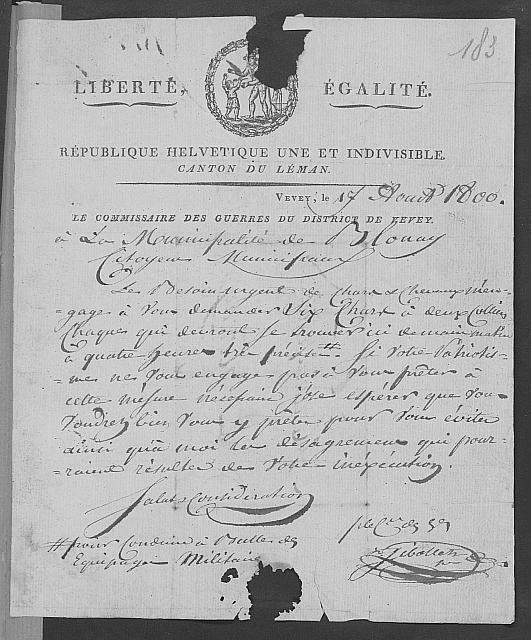 183
LIBERTÉ, ÉGALITÉ.
RÉPUBLIQUE HELVETIQUE UNE ET INDIVISIBLE.
CANTON DU LÉMAN.
VEVEY, le 17 Aout 1800.
LE COMMISSAIRE DES GUERRES DU DISTRICT DE VEVEY.
à La Municipalité de Blonay
Citoyens Municipaux
Le Besoin urgent de Chars & Chevaux m'en-
-gage à Vous demander Six Chars à deux Colliers
Chaques qui devront se trouver ici demain matin
à quatre heures très précise #. Si Votre Patriotis-
-me ne Vous engage pas à Vous prêter à
cette mésure nécessaire j'ose espérer que Vous
Voudrez bien Vous y prêter pour Vous éviter
ainsi qu'à moi les désagremens qui pour-
-raient résulter de Votre inéxécution.
Salut & Considération
# pour Conduire à Bulle des
Equipages Militaire